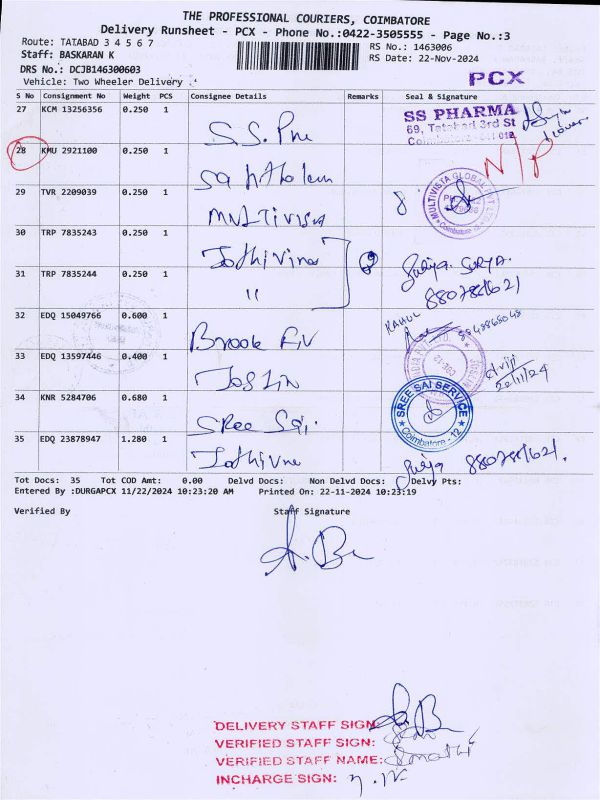 THE PROFESSIONAL COURIERS, COIMBATORE
Delivery Runsheet - PCX - Phone No.:0422-3505555 - Page No.:3
Route: TATABAD 3 4 5 6 7
RS No.: 1463006
Staff: BASKARAN K
RS Date: 22-Nov-2024
DRS No.: DCJB146300603
Vehicle: Two Wheeler Delivery .
PCX
S No Consignment No Weight PCS Consignee Details Remarks Seal & Signature
27 KCM 13256356 0.250 1
SS PHARMA
69, Tatabad 3rd St
Coimbatore - 641 012
28 KMU 2921100 0.250 1
N/P
29 TVR 2209039 0.250 1 MULTIVISTA
MULTIVISTA GLOBAL PVT LTD
Coimbatore
30 TRP 7835243 0.250 1
Suriya. SURYA.
31 TRP 7835244 0.250 1 "
32 EDQ 15049766 0.600 1 Brook
RAHUL
33 EDQ 13597446 0.400 1 JOSLIN
22/11/24
34 KNR 5284706 0.680 1 Sree Sai.
SREE SAI SERVICE
Coimbatore - 12
35 EDQ 23878947 1.280 1
Tot Docs: 35 Tot COD Amt: 0.00 Delvd Docs: Non Delvd Docs: Delvy Pts:
Entered By :DURGAPCX 11/22/2024 10:23:20 AM Printed On: 22-11-2024 10:23:19
Verified By Staff Signature
DELIVERY STAFF SIGN:
VERIFIED STAFF SIGN:
VERIFIED STAFF NAME:
INCHARGE SIGN: